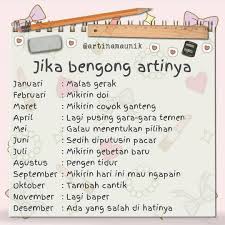 @artinamaunik
Jika bengong artinya
Januari : Malas gerak
Februari : Mikirin doi
Maret : Mikirin cowok ganteng
April : Lagi pusing gara-gara temen
Mei : Galau menentukan pilihan
Juni : Sedih diputusin pacar
Juli : Mikirin gebetan baru
Agustus : Pengen tidur
September : Mikirin hari ini mau ngapain
Oktober : Tambah cantik
November : Lagi baper
Desember : Ada yang salah di hatinya